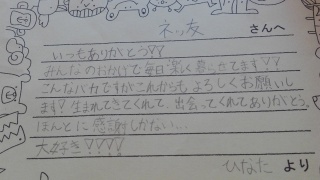 ネッ友 さんへ
いつもありがとう!!
みんなのおかげで毎日楽しく暮らせてます!!
こんなバカですがこれからもよろしくお願いし
ます!生まれてきてくれて、出会ってくれてありがとう。
ほんとに感謝しかない…
大好き!!!!
ひなた より